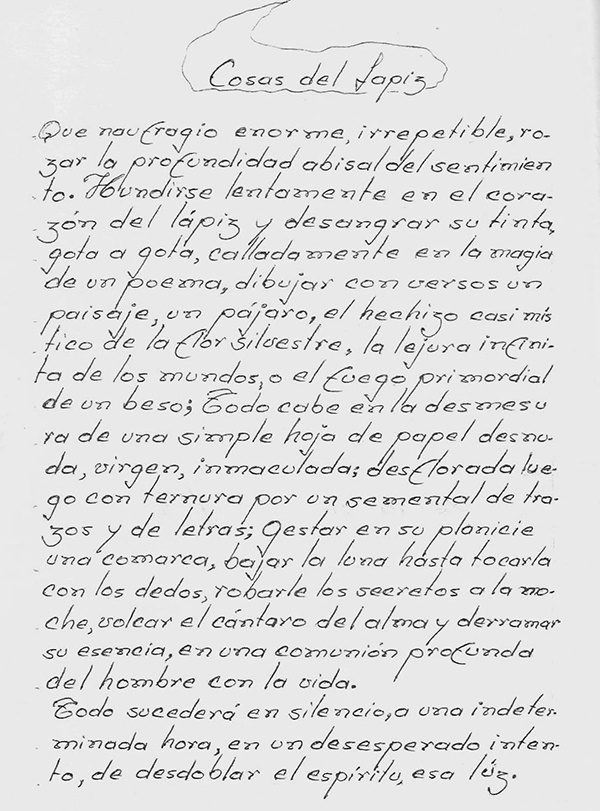 Cosas del Lapiz
Que naufragio enorme, irrepetible, ro-
zar la profundidad abisal del sentimien
to. Hundirse lentamente en el cora-
zón del lápiz y desangrar su tinta,
gota a gota, calladamente en la magia
de un poema, dibujar con versos un
paisaje, un pájaro, el hechizo casi mís
tico de la flor silvestre, la lejura infini-
ta de los mundos, o el fuego primordial
de un beso; Todo cabe en la desmesu
ra de una simple hoja de papel desnu-
da, virgen, inmaculada; desflorada lue-
go con ternura por un semental de tra-
zos y de letras; Gestar en su planicie
una comarca, bajar la luna hásta tocarla
con los dedos, robarle los secretos a la no-
che, volcar el cántaro del alma y derramar
su esencia, en una comunión profunda
del hombre con la vida.
Todo sucederá en silencio, a una indeter-
minada hora, en un desesperado inten-
to, de desdoblar el espíritu, esa lúz.